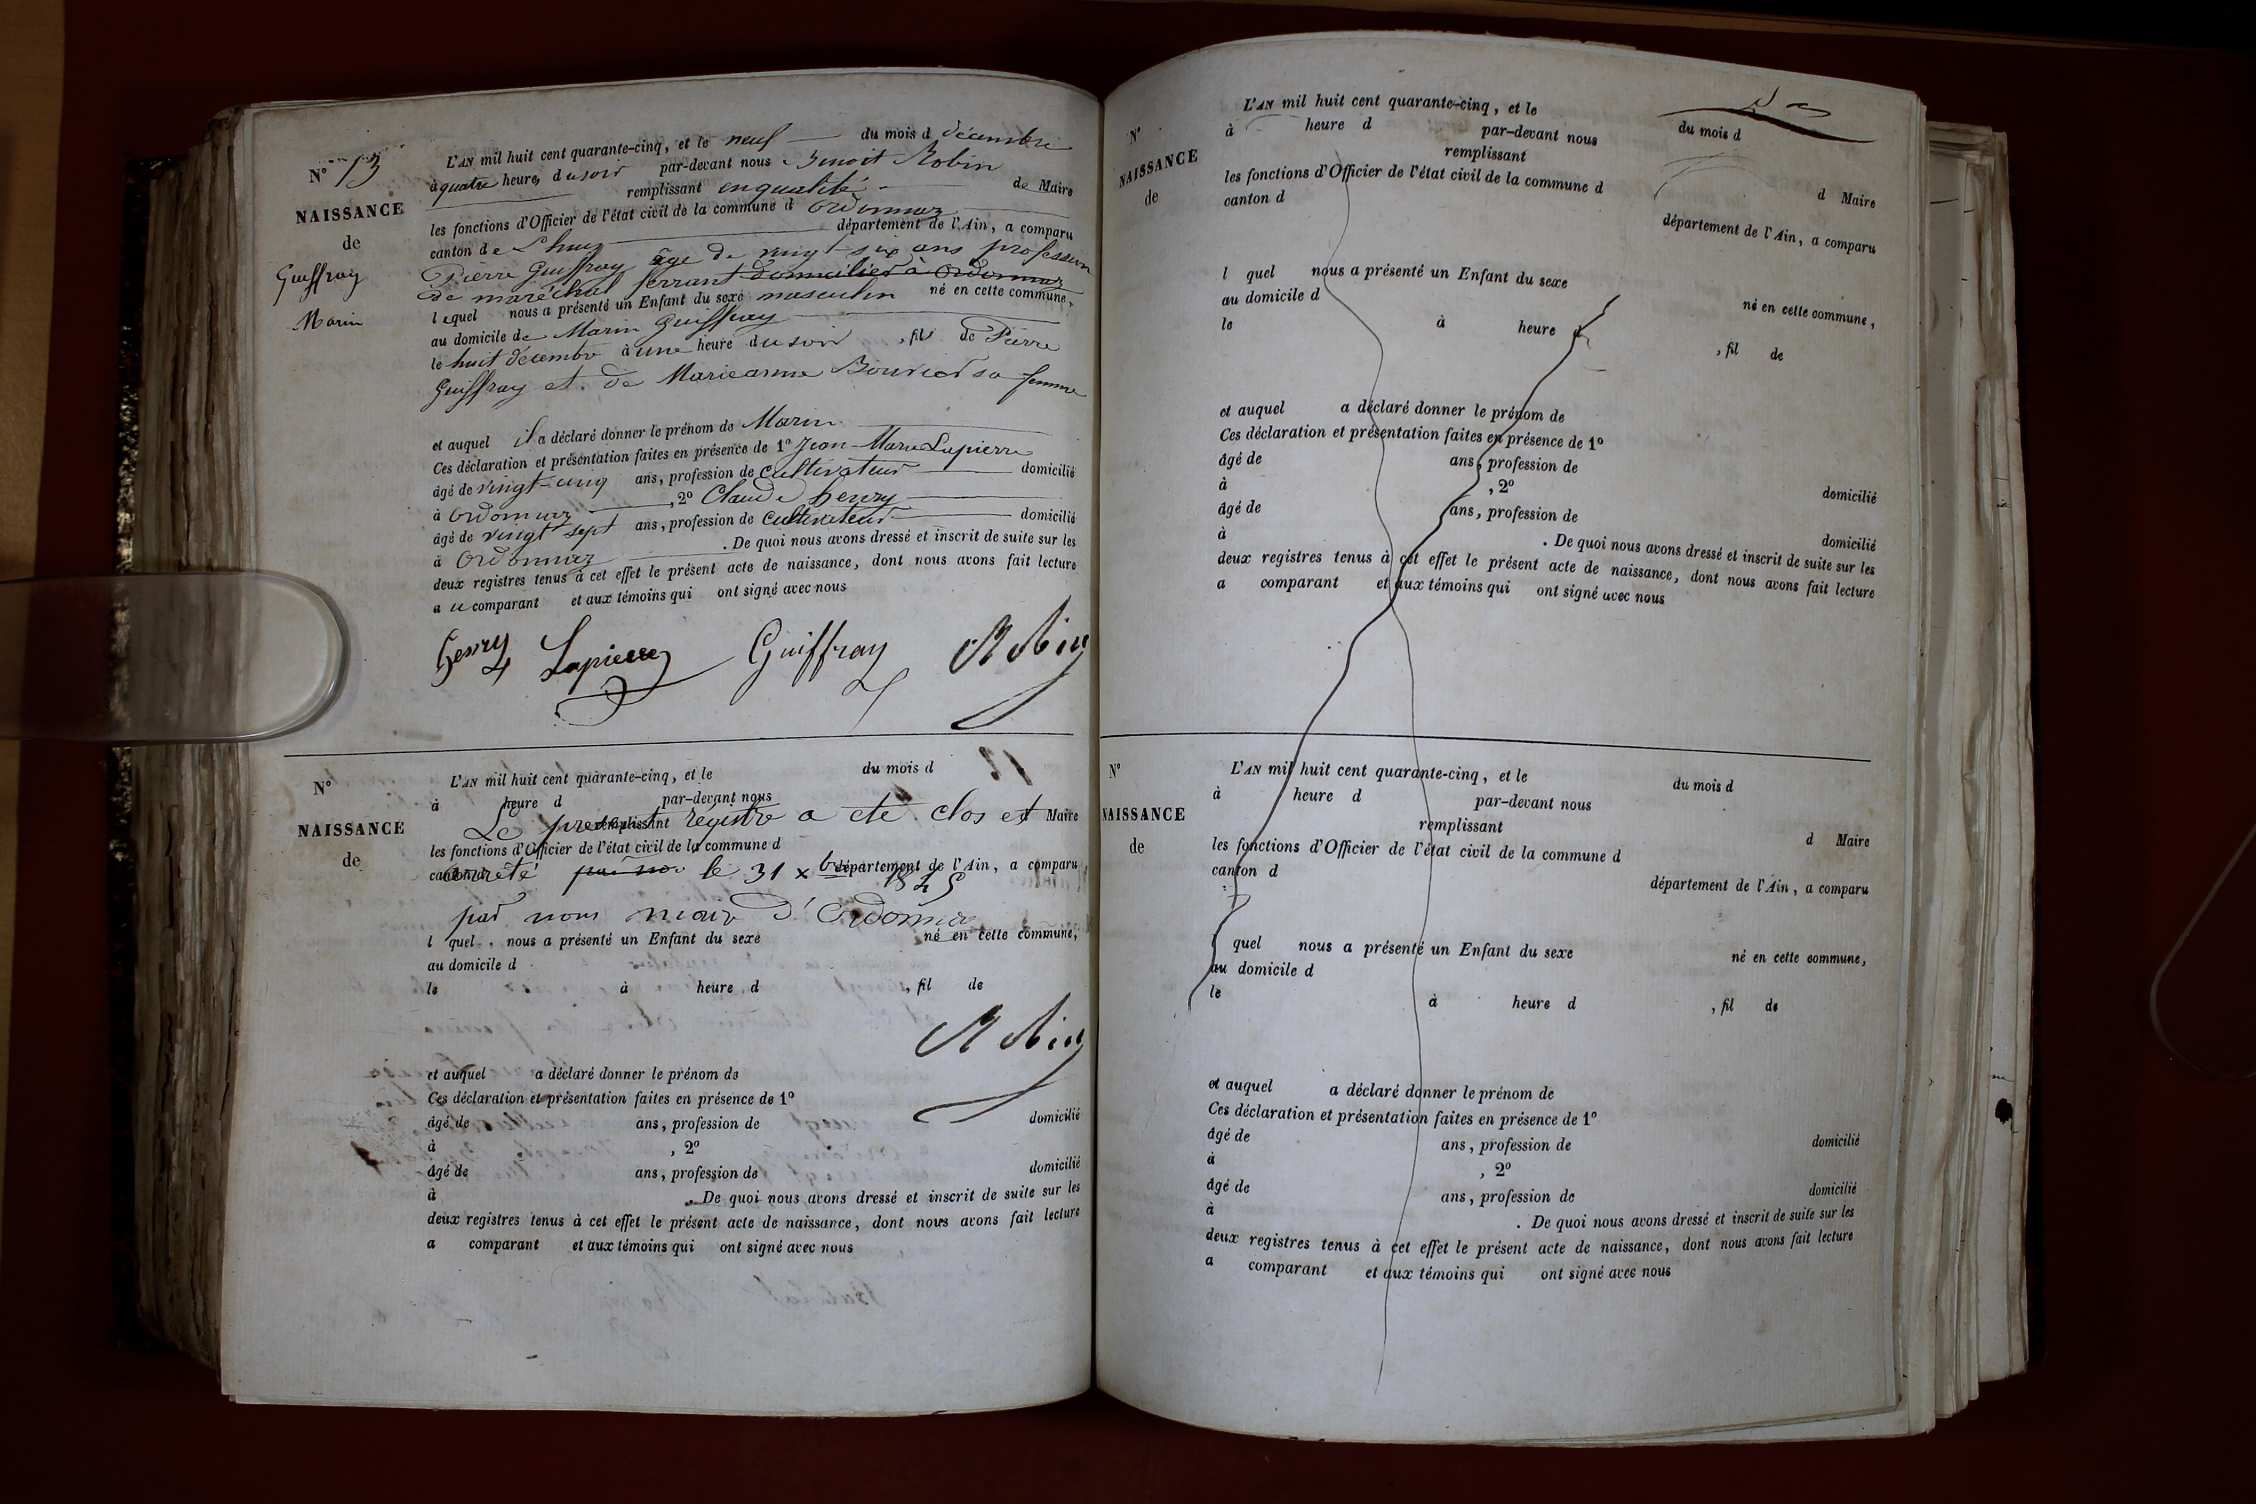 N° 13
NAISSANCE
de
Guiffray
Marin
L'AN mil huit cent quarante-cinq, et le neuf du mois d décembre
à quatre heures du soir par-devant nous Benoit Robin
remplissant en qualité de Maire
les fonctions d'Officier de l'état civil de la commune d Ordonnaz
canton de Lhuiz département de l'Ain, a comparu
Pierre Guiffray âge de vingt-six ans profession
de maréchal ferrant domicilié à Ordonnaz
lequel nous a présenté un Enfant du sexe masculin né en cette commune,
au domicile de Marin Guiffray
le huit décembre à une heure du soir, fils de Pierre
Guiffray et de Marieanne Bouvier sa femme
et auquel il a déclaré donner le prénom de Marin
Ces déclaration et présentation faites en présence de 1° Jean-Marie Lapierre
âgé de vingt-cinq ans, profession de cultivateur domicilié
à Ordonnaz, 2° Claude henry
âgé de vingt sept ans, profession de cultivateur domicilié
à Ordonnaz. De quoi nous avons dressé et inscrit de suite sur les
deux registres tenus à cet effet le présent acte de naissance, dont nous avons fait lecture
a u comparant et aux témoins qui ont signé avec nous
henry Lapierre Guiffray Robin
N°
NAISSANCE
de
L'AN mil huit cent quarante-cinq, et le du mois d
à heure d par-devant nous
remplissant Maire
Le present régistre a été clos et
les fonctions d'Officier de l'état civil de la commune d
canton d département de l'Ain, a comparu
arrêté par nous le 31 xbre 1845
par nous maire d'Ordonnaz
l quel nous a présenté un Enfant du sexe né en cette commune,
au domicile d
le à heure d, fil de
Robin
et auquel a déclaré donner le prénom de
Ces déclaration et présentation faites en présence de 1°
âgé de ans, profession de domicilié
à, 2°
âgé de ans, profession de domicilié
à. De quoi nous avons dressé et inscrit de suite sur les
deux registres tenus à cet effet le présent acte de naissance, dont nous avons fait lecture
a comparant et aux témoins qui ont signé avec nous
N°
NAISSANCE
de
L'AN mil huit cent quarante-cinq, et le du mois d
à heure d par-devant nous
remplissant d Maire
les fonctions d'Officier de l'état civil de la commune d
canton d département de l'Ain, a comparu
l quel nous a présenté un Enfant du sexe né en cette commune,
au domicile d
le à heure d, fil de
et auquel a déclaré donner le prénom de
Ces déclaration et présentation faites en présence de 1°
âgé de ans, profession de domicilié
à, 2°
âgé de ans, profession de domicilié
à. De quoi nous avons dressé et inscrit de suite sur les
deux registres tenus à cet effet le présent acte de naissance, dont nous avons fait lecture
a comparant et aux témoins qui ont signé avec nous
N°
NAISSANCE
de
L'AN mil huit cent quarante-cinq, et le du mois d
à heure d par-devant nous
remplissant d Maire
les fonctions d'Officier de l'état civil de la commune d
canton d département de l'Ain, a comparu
quel nous a présenté un Enfant du sexe né en cette commune,
au domicile d
le à heure d, fil de
et auquel a déclaré donner le prénom de
Ces déclaration et présentation faites en présence de 1°
âgé de ans, profession de domicilié
à, 2°
âgé de ans, profession de domicilié
à. De quoi nous avons dressé et inscrit de suite sur les
deux registres tenus à cet effet le présent acte de naissance, dont nous avons fait lecture
a comparant et aux témoins qui ont signé avec nous